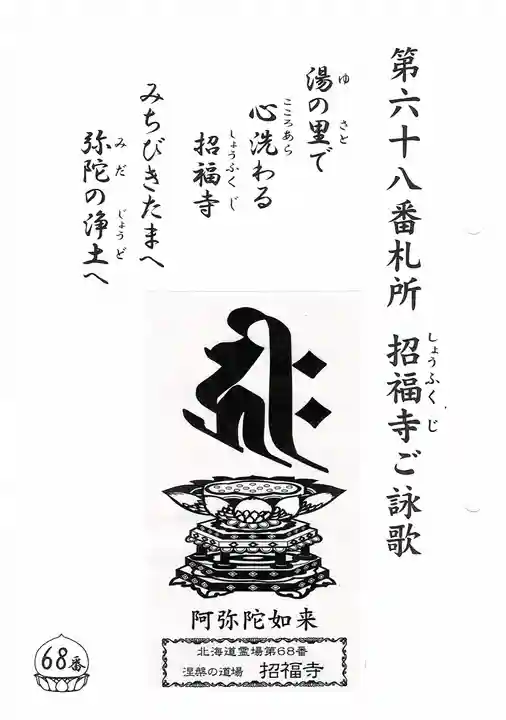 第六十八番札所 招福寺ご詠歌
しょうふくじ
湯の里で
ゆ さと
心洗わる
こころあら
招福寺
しょうふくじ
みちびきたまへ
弥陀の浄土へ
みだ じょうど
𑖮𑖿𑖨𑖱𑖾
阿弥陀如来
北海道霊場第68番
涅槃の道場 招福寺
68番